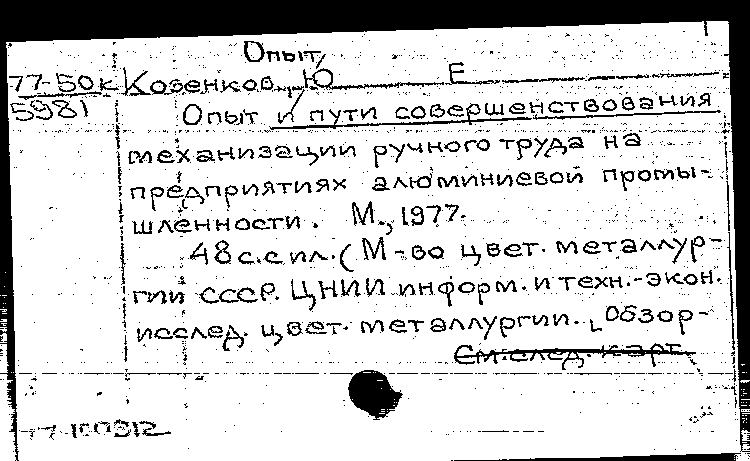 Опыт
77-50к Козенков, Ю Е
5981 Опыт и пути совершенствования
механизации ручного труда на
предприятиях алюминиевой промы-
шленности. М., 1977.
48 с. с ил. (М-во цвет. металлур-
гии СССР. ЦНИИ информ. и техн.-экон.
исслед. цвет. металлургии. Обзор-
См. след. карт.
77-100912